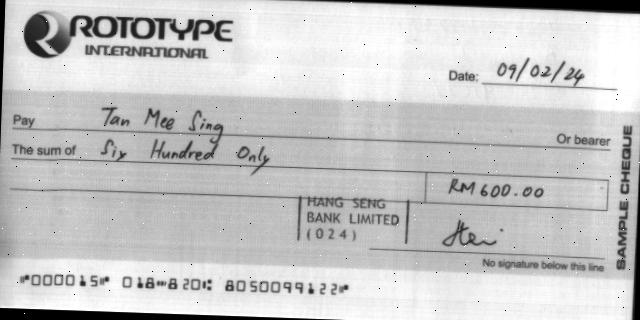 ROTOTYPE
INTERNATIONAL
Date: 09/02/24
Pay Tan Mee Sing Or bearer
The sum of Six Hundred Only
RM 600.00
HANG SENG
BANK LIMITED
(024)
No signature below this line
SAMPLE CHEQUE
⑈000015⑈ 018⑉820⑆ 8050099122⑈